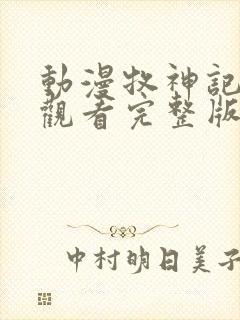 動漫牧神記
觀看完整版
中村明日美子